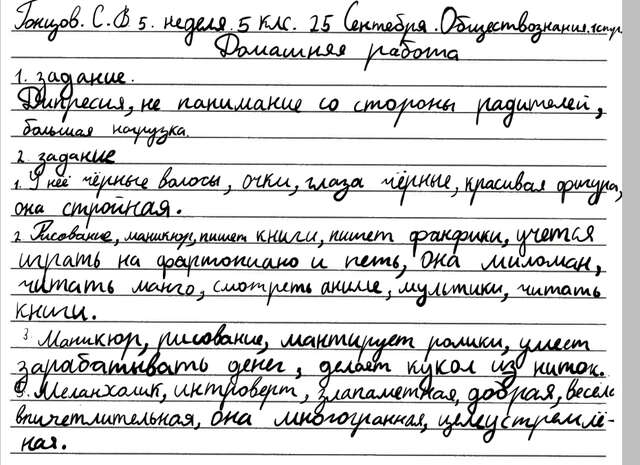 Гонцов. С.Ф 5. неделя. 5 клс. 25 Сентября. Обществознания. 1стр.
Домашняя работа
1. задание.
Дипресия, не панимание со стороны радителей,
большая нагрузка.
2. задание
1. У неё чёрные волосы, очки, глаза чёрные, красивая фигура,
она стройная.
2. Рисование, маникюр, пишет книги, пишет фанфики, учется
играть на фартопиано и петь, она миломан,
читать манго, смотреть аниме, мультики, читать
книги.
3. Маникюр, рисование, мантирует ролики, умеет
зарабатывать денег, делает кукол из ниток.
Меланхалик, интроверт, злапаметная, добрая, весела
впичетлительная, она многогранная, целеустремлё-
ная.